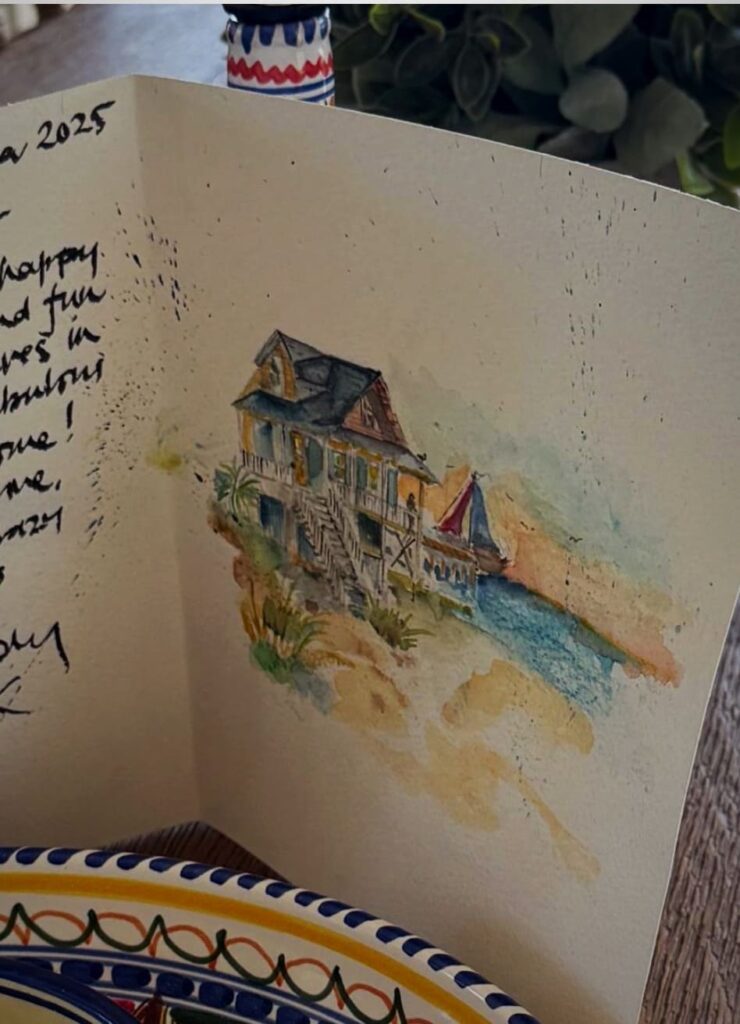 a 2025
happy
nd fun
res in
bulous
ome!
me.